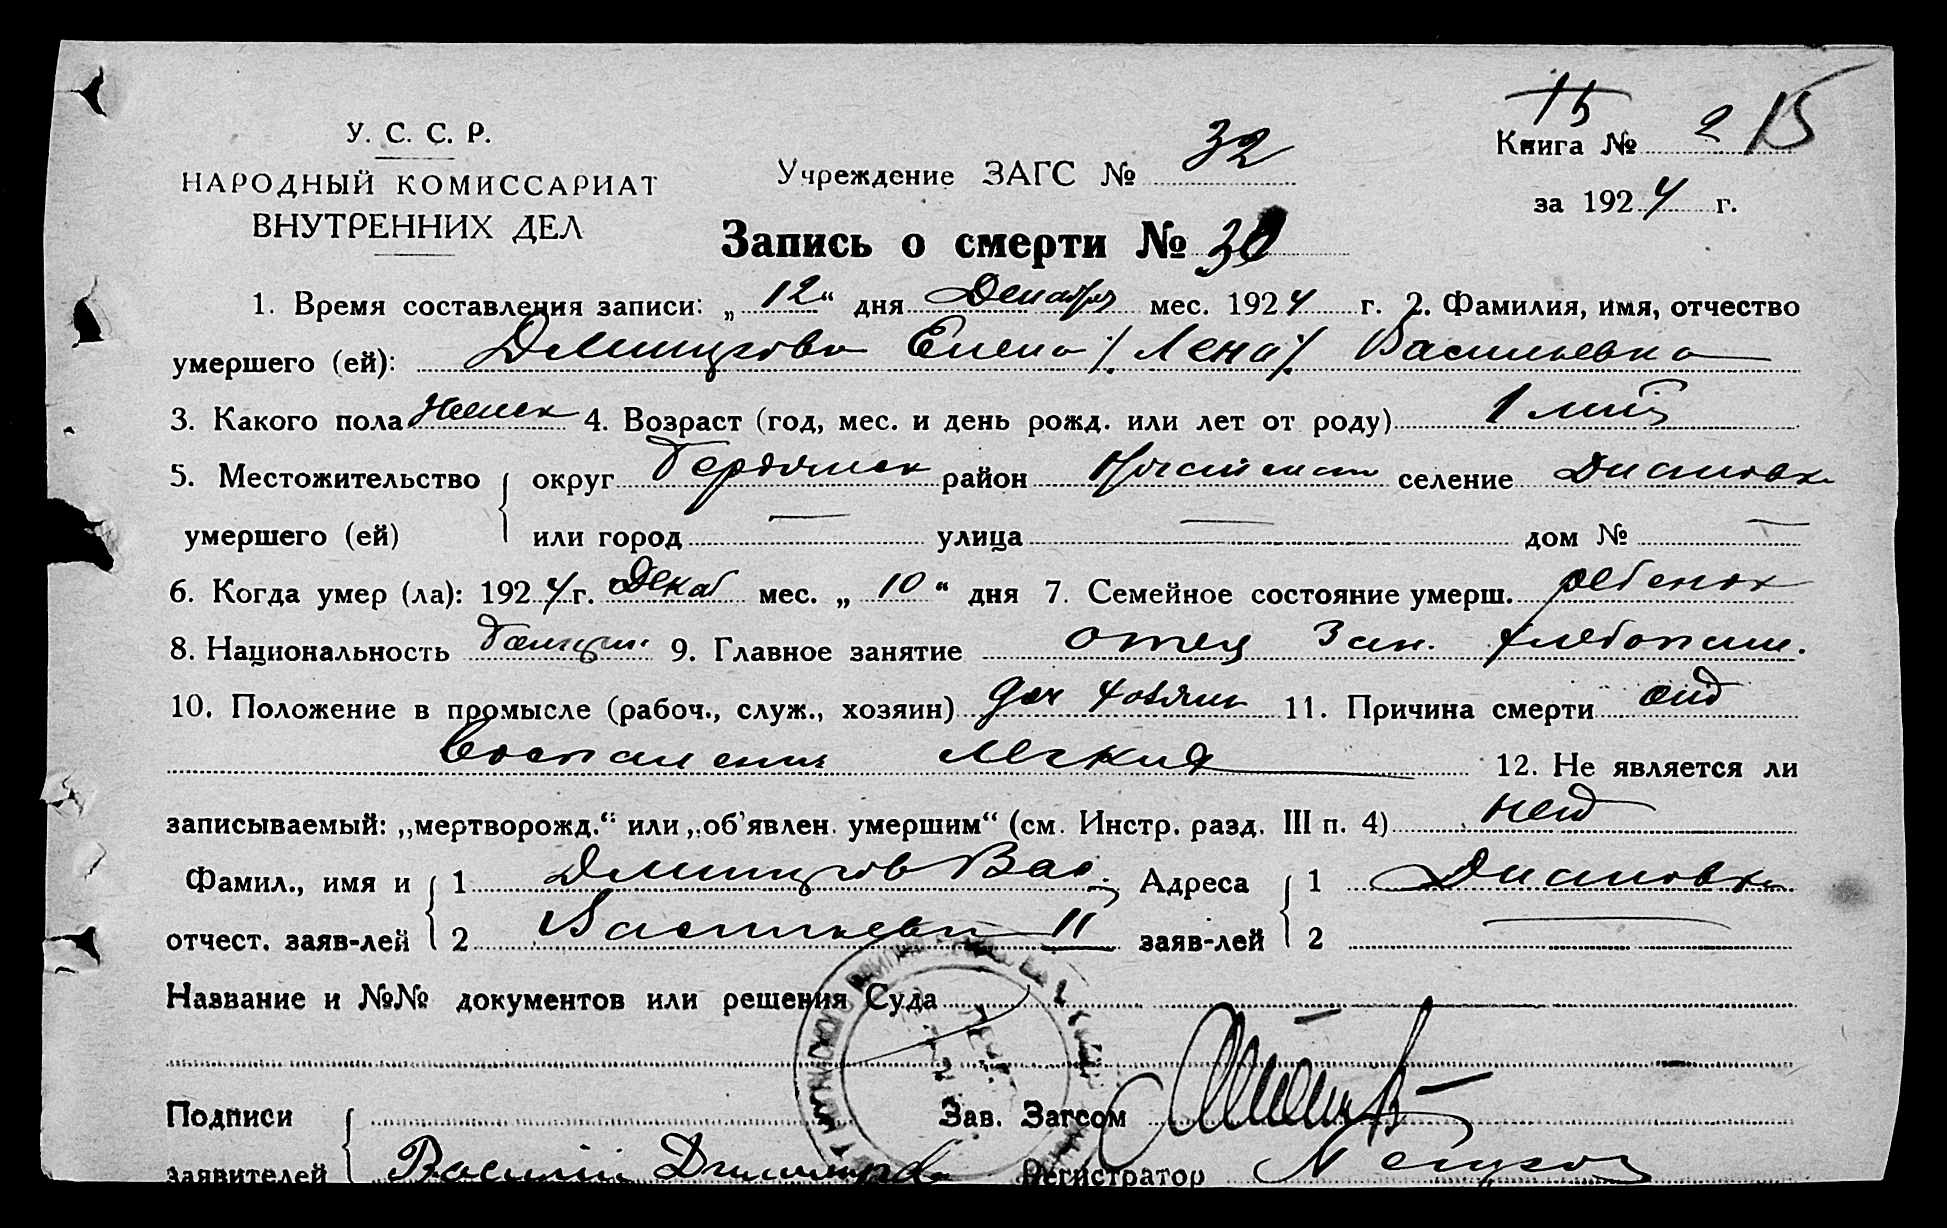 15
У. С. С. Р.
НАРОДНЫЙ КОМИССАРИАТ
ВНУТРЕННИХ ДЕЛ
Учреждение ЗАГС № 32
Книга № 2 15
за 1924 г.
Запись о смерти № 30
1. Время составления записи: „12“ дня Декабря мес. 1924 г. 2. Фамилия, имя, отчество
умершего (ей): Димитрова Елена /Лена/ Васильевна
3. Какого пола женск 4. Возраст (год, мес. и день рожд. или лет от роду) 1
5. Местожительство округ Бердянск район селение Диановка
умершего (ей) или город — улица — дом № —
6. Когда умер (ла): 1924 г. Декаб мес. „10“ дня 7. Семейное состояние умерш. ребенок
8. Национальность 9. Главное занятие отец зан. хлебопаш.
10. Положение в промысле (рабоч., служ., хозяин) 11. Причина смерти от
воспаления легких
12. Не является ли
записываемый: „мертворожд.“ или „об'явлен. умершим“ (см. Инстр. разд. III п. 4) нет
Фамил., имя и 1 Димитров Вас. Адреса 1 Диановка
отчест. заяв-лей 2 Васильевич II заяв-лей 2 —
Название и №№ документов или решения Суда
Подписи Зав. Загсом
заявителей Василий Димитров Регистратор